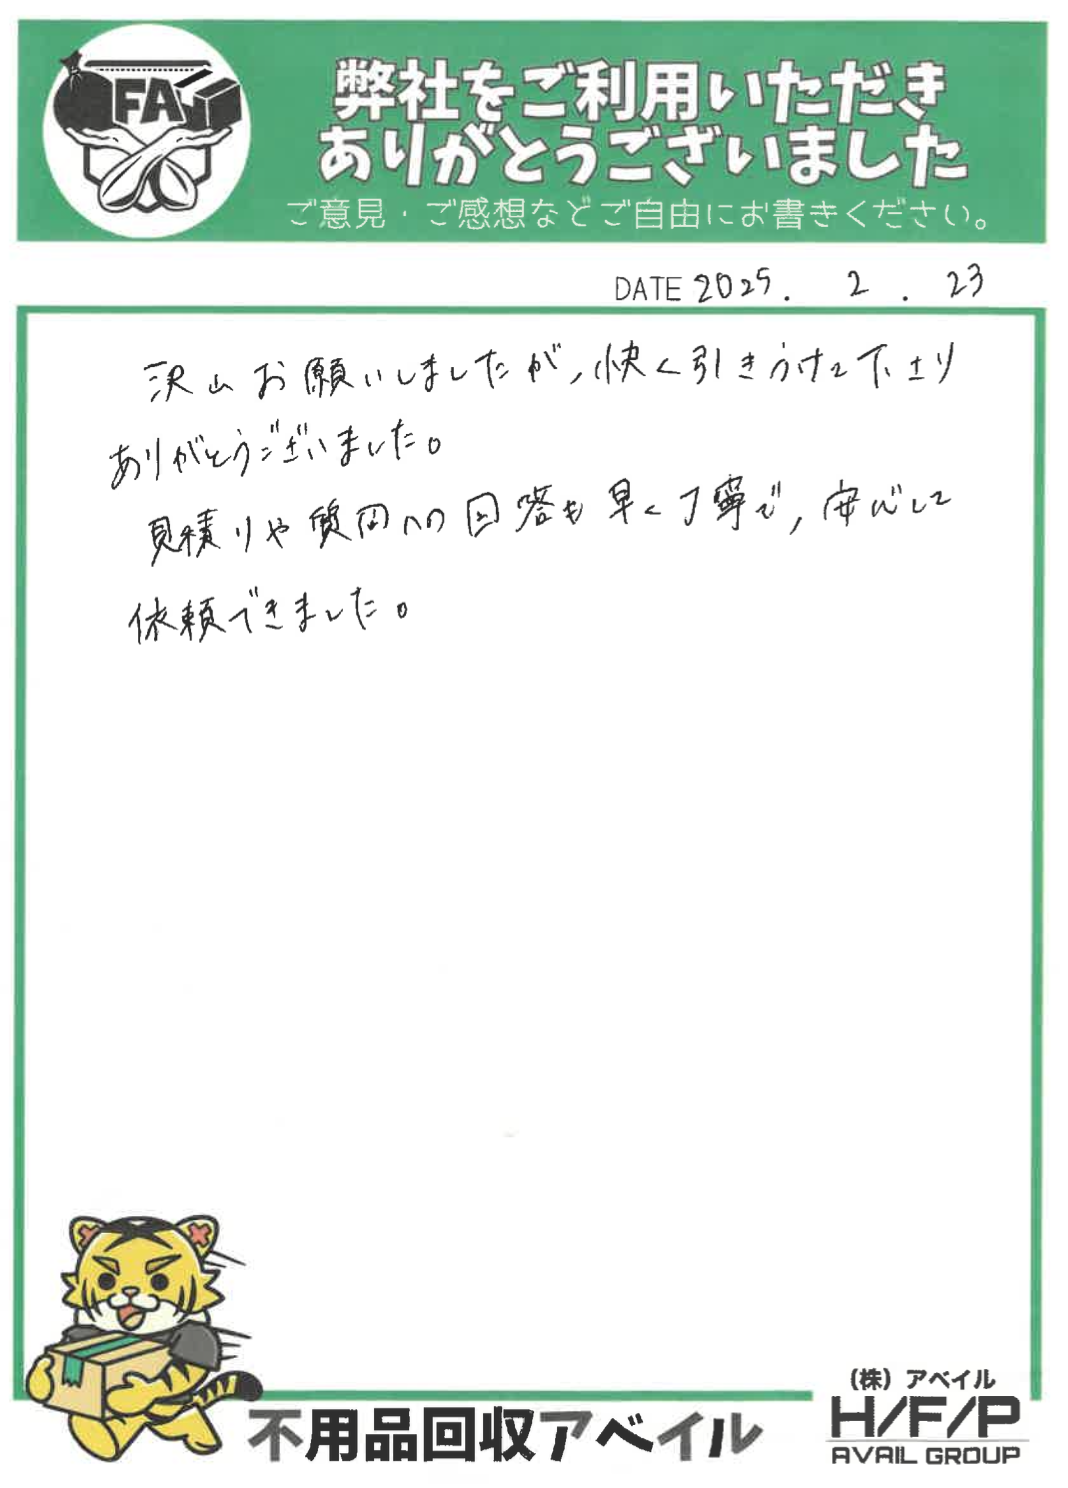 FA
弊社をご利用いただき
ありがとうございました
ご意見・ご感想などご自由にお書きください。
DATE 2025. 2. 23
沢山お願いしましたが、快く引きうけて下さり
ありがとうございました。
見積りや質問への回答も早く丁寧で、安心して
依頼できました。
不用品回収アベイル
(株)アベイル
H/F/P
AVAIL GROUP